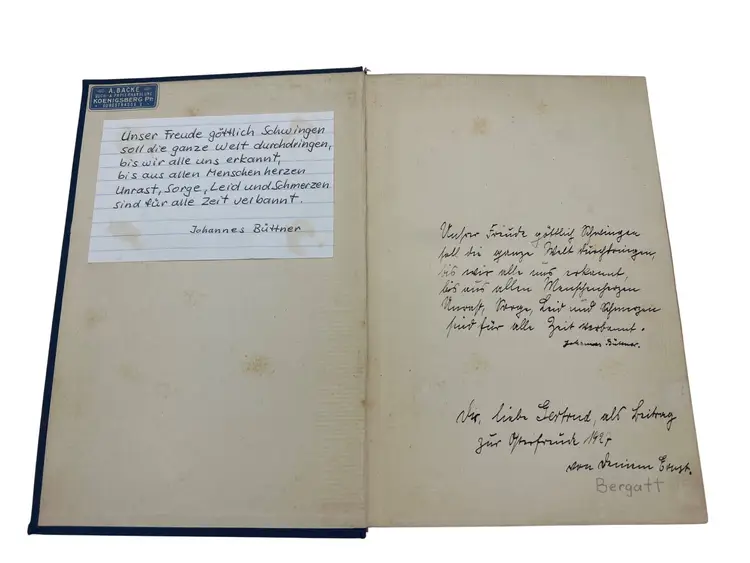 A. BACKE
BUCH- & PAPIERHANDLUNG
KOENIGSBERG Pr.
Unser Freude göttlich Schwingen
soll die ganze Welt durchdringen,
bis wir alle uns erkannt,
bis aus allen Menschenherzen
Unrast, Sorge, Leid und Schmerzen
sind für alle Zeit verbannt.
Johannes Büttner
Unser Freude göttlich Schwingen
soll die ganze Welt durchdringen,
bis wir alle uns erkannt,
bis aus allen Menschenherzen
Unrast, Sorge, Leid und Schmerzen
sind für alle Zeit verbannt.
Johannes Büttner.
Dir, liebe Gertrud, als Beitrag
zur Osterfreude
von Deinem Ernst.
Bergatt